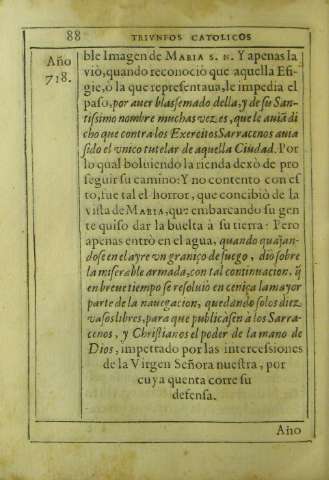 88 TRIVNFOS CATOLICOS
Año
718.
ble Imagen de MARIA S. N. Y apenas la
viò, quando reconociò que aquella Efi-
gie, ò la que representaua, le impedia el
passo, por auer blasfemado della, y de su San-
tissimo nombre muchas vezes, que le auiã di
cho que contra los Exercitos Sarracenos auia
sido el vnico tutelar de aquella Ciudad. Por
lo qual boluiendo la rienda dexò de pro
seguir su camino: Y no contento con es
to, fue tal el horror, que concibiò de la
vista de MARIA, que embarcando su gen
te quiso dar la buelta à su tierra: Pero
apenas entrò en el agua, quando quajan-
dose en el ayre vn graniço de fuego, diò sobre
la miserable armada, con tal continuacion, q̃
en breue tiempo se resoluio en ceniça la mayor
parte de la nauegacion, quedando solos diez
vasos libres, para que publicàsen à los Sarra-
cenos, y Christianos el poder de la mano de
Dios, impetrado por las intercessiones
de la Virgen Señora nuestra, por
cuya quenta corre su
defensa.
Año